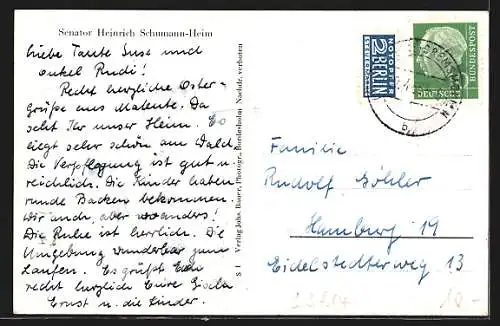 Senator Heinrich Schumann-Heim
Liebe Tante Suse und
onkel Rudi!
Recht herzliche Oster-
grüße aus Malente. Da
seht Ihr unser Heim. Es
liegt sehr schön am Wald.
Die Verpflegung ist gut u.
reichlich. Die Kinder haben
runde Backen bekommen.
Wir auch, aber woanders!
Die Ruhe ist herrlich. Die
Umgebung wunderbar zum
Laufen. Es grüßt Euch
recht herzlich Eure Gisela
Ernst u. die Kinder.
Verlag Johs. Bauer, Photogr., Bordesholm Nachdr. verboten
NOTOPFER
2 BERLIN
STEUERMARKE
DEUTSCHE
BUNDESPOST
Familie
Rudolf Göhler
Hamburg 19
Eidelstedterweg 13
10.-